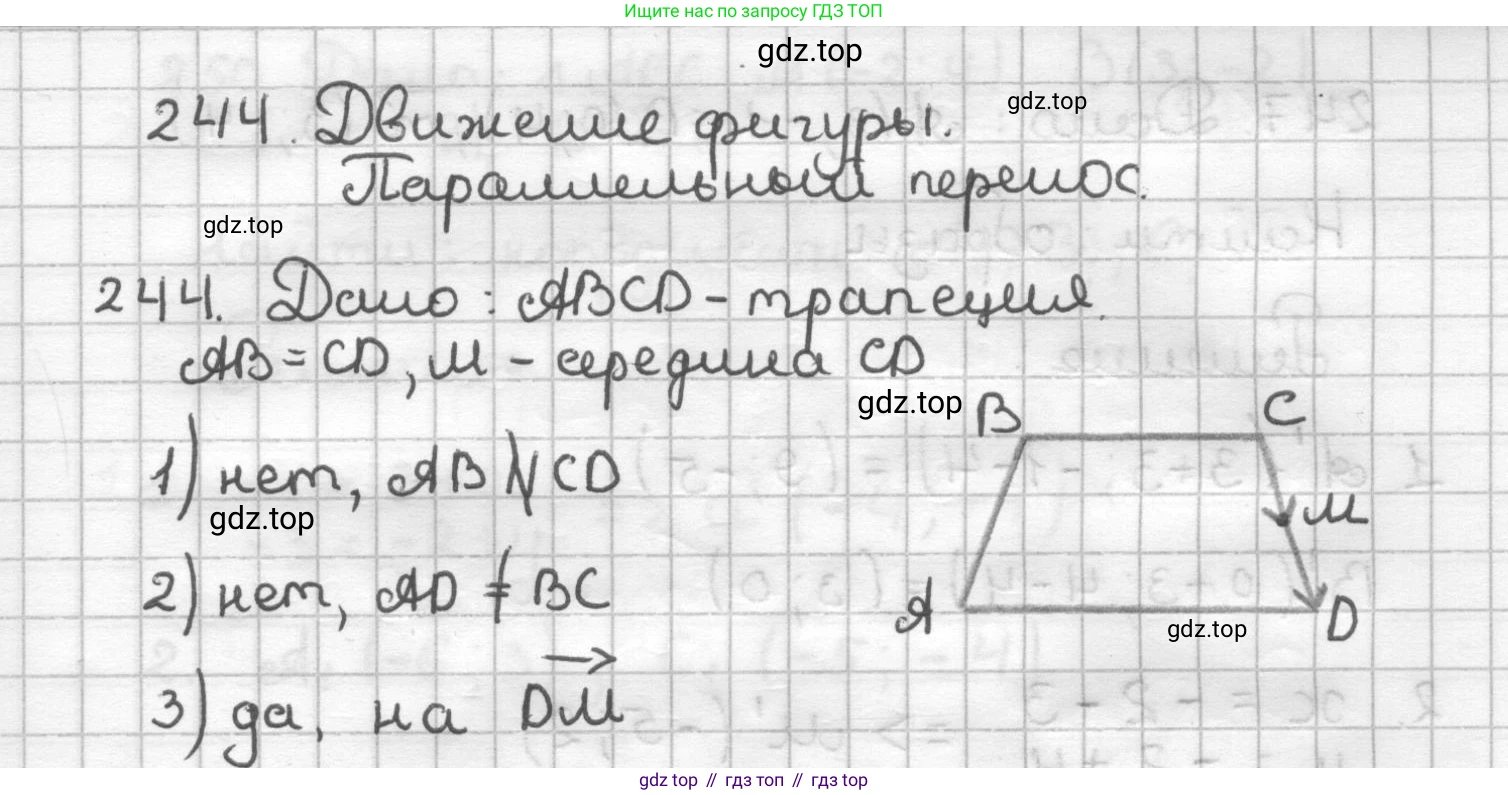 Ищите нас по запросу ГДЗ ТОП
gdz.top
244. Движение фигуры.
gdz.top
Параллельный перенос.
gdz.top
244. Дано: ABCD - трапеция.
AB = CD, M - середина CD
gdz.top
B
C
1) нет, AB ∦ CD
gdz.top
M
2) нет, AD ≠ BC
A
D
gdz.top
3) да, на \overrightarrow{DM}
gdz top // гдз топ // gdz top